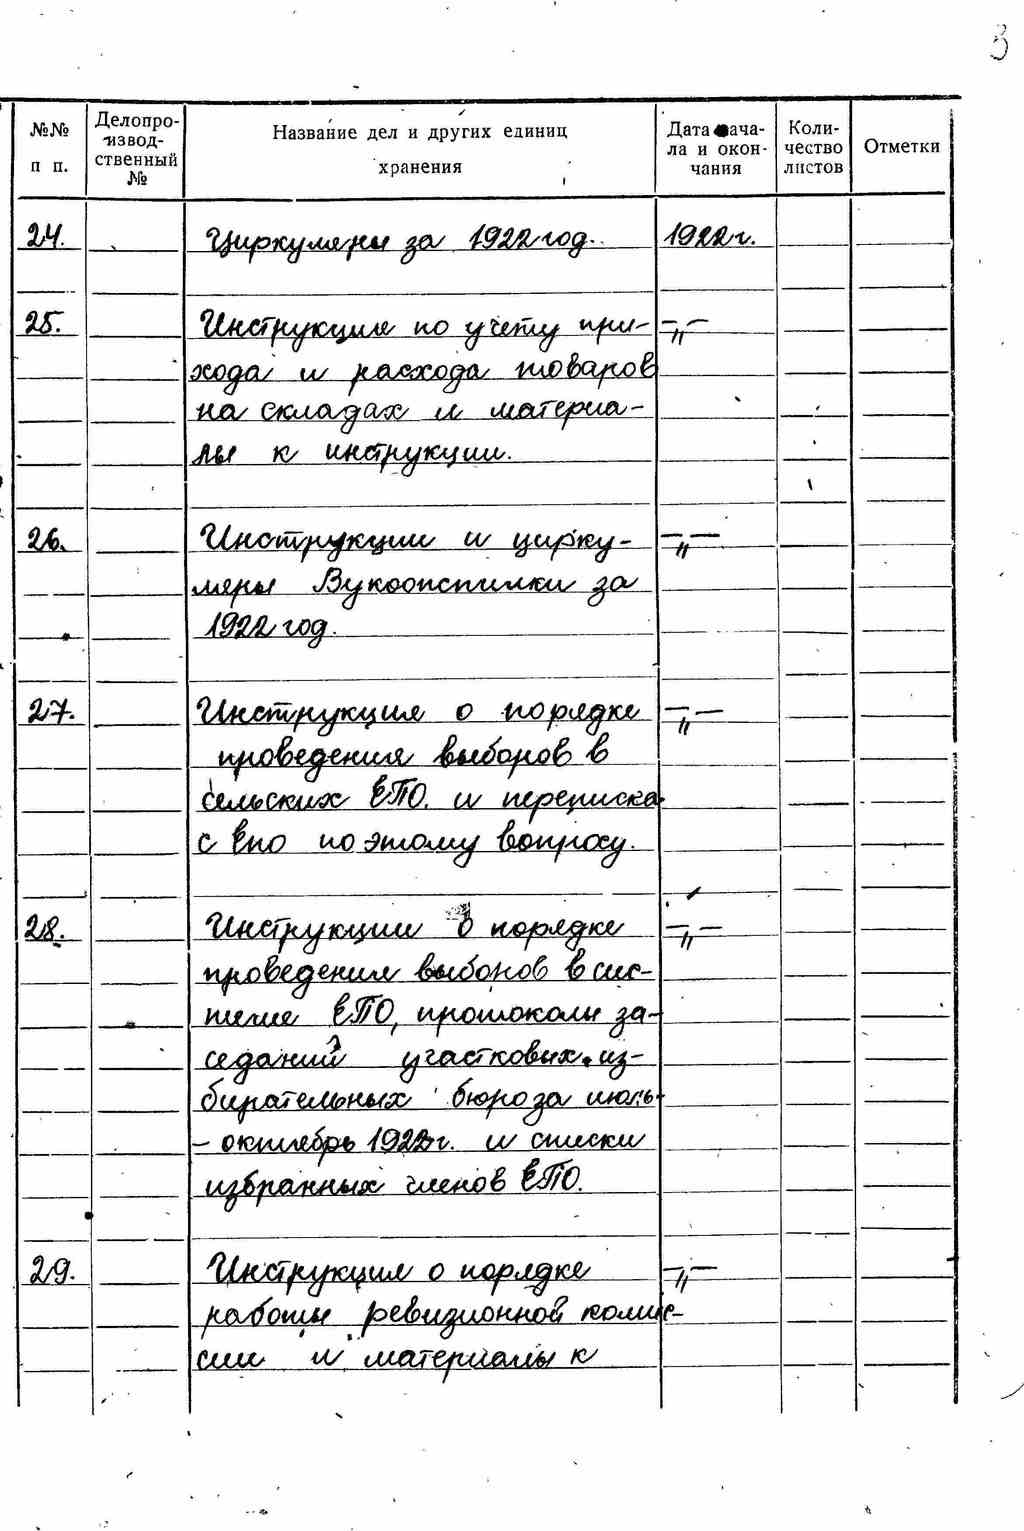 3
№№ п п.
Делопро-
извод-
ственный
№
Название дел и других единиц
хранения
Дата нача-
ла и окон-
чания
Коли-
чество
листов
Отметки
24. Циркуляры за 1922 год. 1922 г.
25. Инструкция по учету при- —„—
хода и расхода товаров
на складах и материа-
лы к инструкции.
26. Инструкции и цирку- —„—
ляры Вукоопспилки за
1922 год.
27. Инструкция о порядке —„—
проведения выборов в
сельских ЕПО. и переписка
с Епо по этому вопросу.
28. Инструкции о порядке —„—
проведения выборов в сис-
теме ЕПО, протоколы за-
седаний участковых из-
бирательных бюро за июль-
- октябрь 1922 г. и списки
избранных членов ЕПО.
29. Инструкция о порядке —„—
работы ревизионной комис-
сии и материалы к